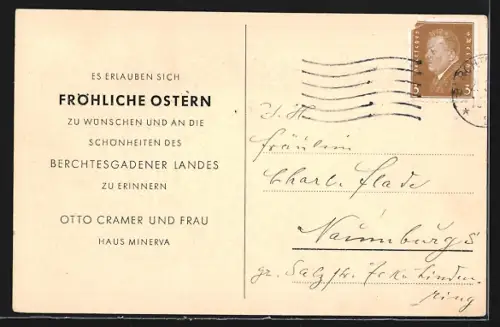 ES ERLAUBEN SICH
FRÖHLICHE OSTERN
ZU WÜNSCHEN UND AN DIE
SCHÖNHEITEN DES
BERCHTESGADENER LANDES
ZU ERINNERN
OTTO CRAMER UND FRAU
HAUS MINERVA
3 3
Fräulein
Naumburg S
gr. Salzstr. Ecke Linden
ring